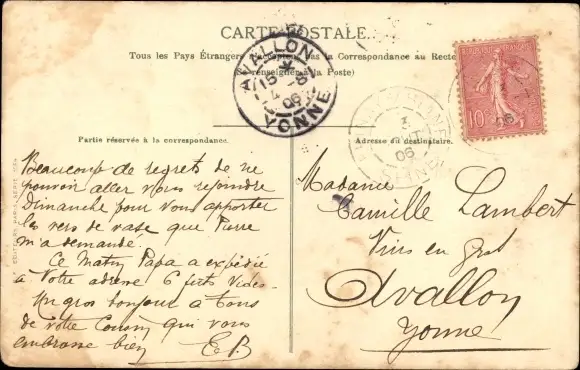 CARTE POSTALE.
Tous les Pays Étrangers n'acceptent pas la Correspondance au Recto
(Se renseigner à la Poste)
AVALLON
15 *
4 -8
06
YONNE
RÉPUBLIQUE FRANÇAISE
10
3
06
YONNE
06
Partie réservée à la correspondance.
Adresse du destinataire.
Beaucoup de regrets de ne
pouvoir aller vous rejoindre
Dimanche pour vous apporter
les vers de vase que Pierre
m'a demandé.
Ce Matin Papa a expédié
à Votre adresse 6 futs Vides.
Un gros bonjour à tous
de votre Cousin qui vous
embrasse bien
E B
Madame
Camille Lambert
Vins en gros
Avallon
Yonne